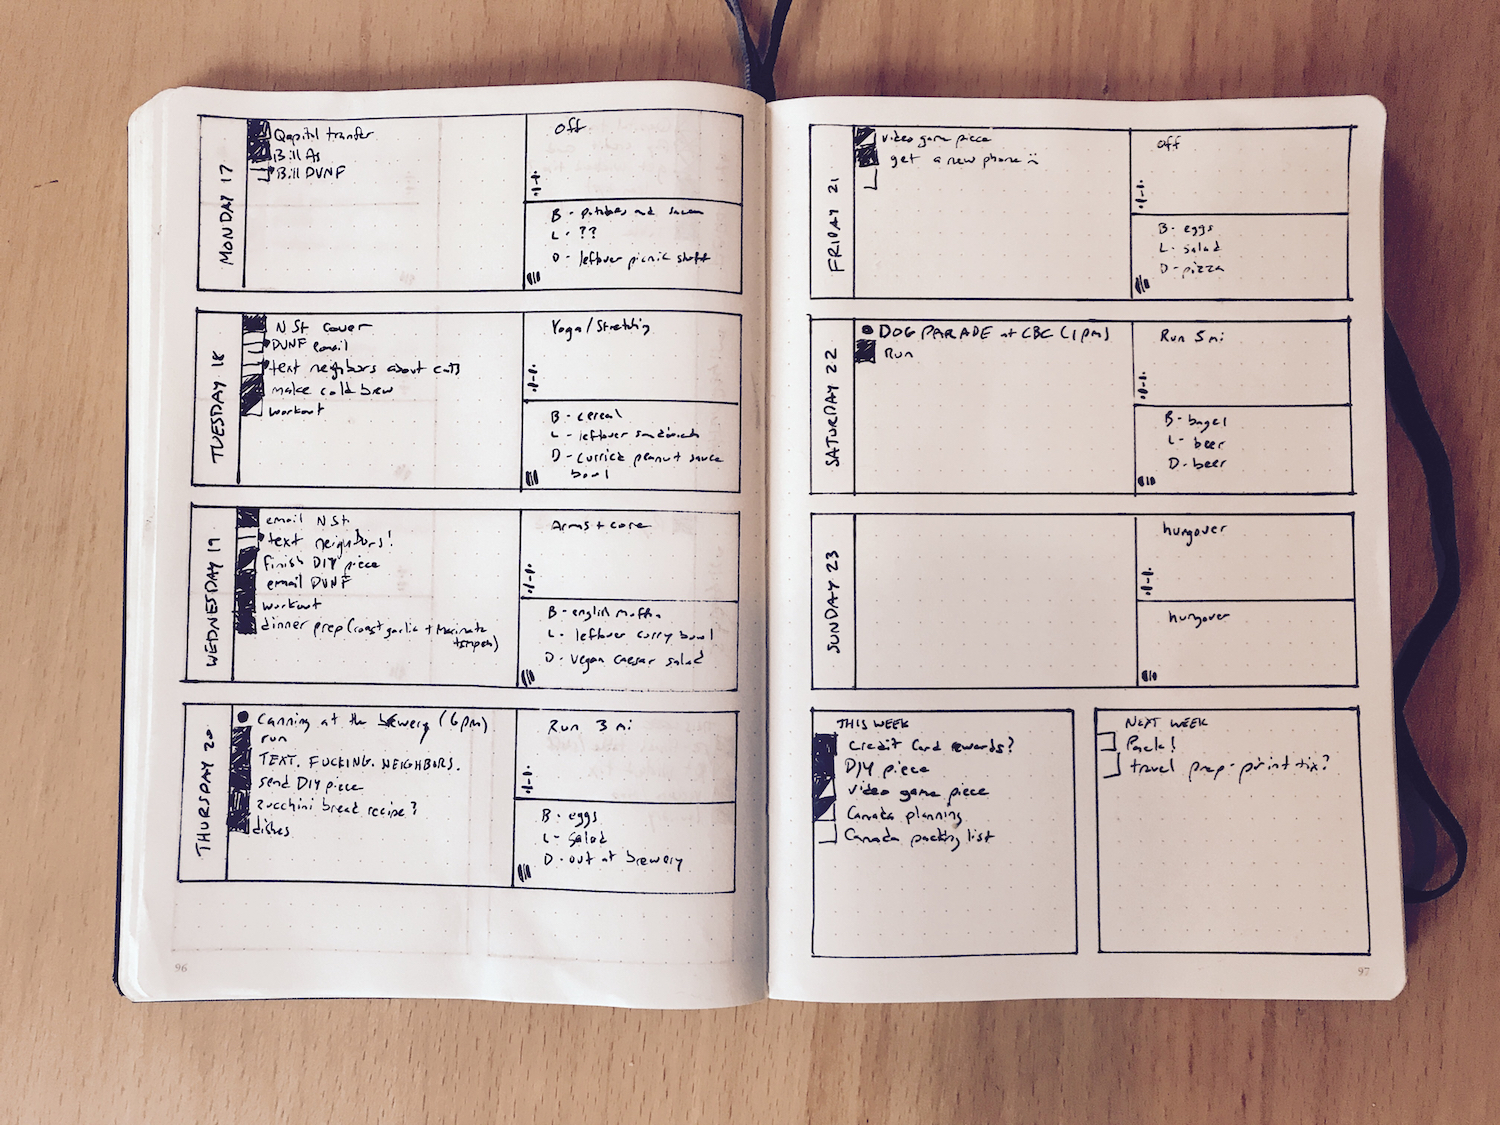 MONDAY 17
Qapital transfer
Bill As
Bill DVNF
Off
B - potatoes and
L - ??
D - leftover picnic stuff
TUESDAY 18
N St cover
DVNF email
text neighbors about cats
make cold brew
workout
Yoga/Stretching
B - cereal
L - leftover sandwich
D - curried peanut sauce
bowl
WEDNESDAY 19
email N St
text neighbors!
finish DIY piece
email DVNF
workout
dinner prep (roast garlic + marinate
tempeh)
Arms + core
B - english muffin
L - leftover curry bowl
D - vegan caesar salad
THURSDAY 20
Canning at the brewery (6pm)
run
TEXT. FUCKING. NEIGHBORS.
send DIY piece
zucchini bread recipe?
dishes
Run 3 mi
B - eggs
L - salad
D - out at brewery
96
FRIDAY 21
video game piece
get a new phone :(
Off
B - eggs
L - salad
D - pizza
SATURDAY 22
DOG PARADE at CBC (1pm)
Run
Run 5 mi
B - bagel
L - beer
D - beer
SUNDAY 23
hungover
hungover
THIS WEEK
Credit Card rewards?
DIY piece
video game piece
Canada planning
Canada packing list
NEXT WEEK
Pack!
travel prep - print tix?
97